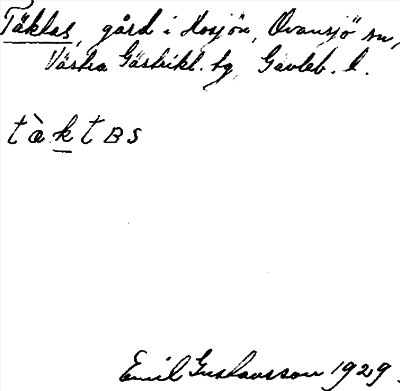 Täktas, gård i Hosjön, Ovansjö sn,
Västra Gästrikl. tg, Gävleb. l.
tàktBs
Emil Gustavsson 1929.